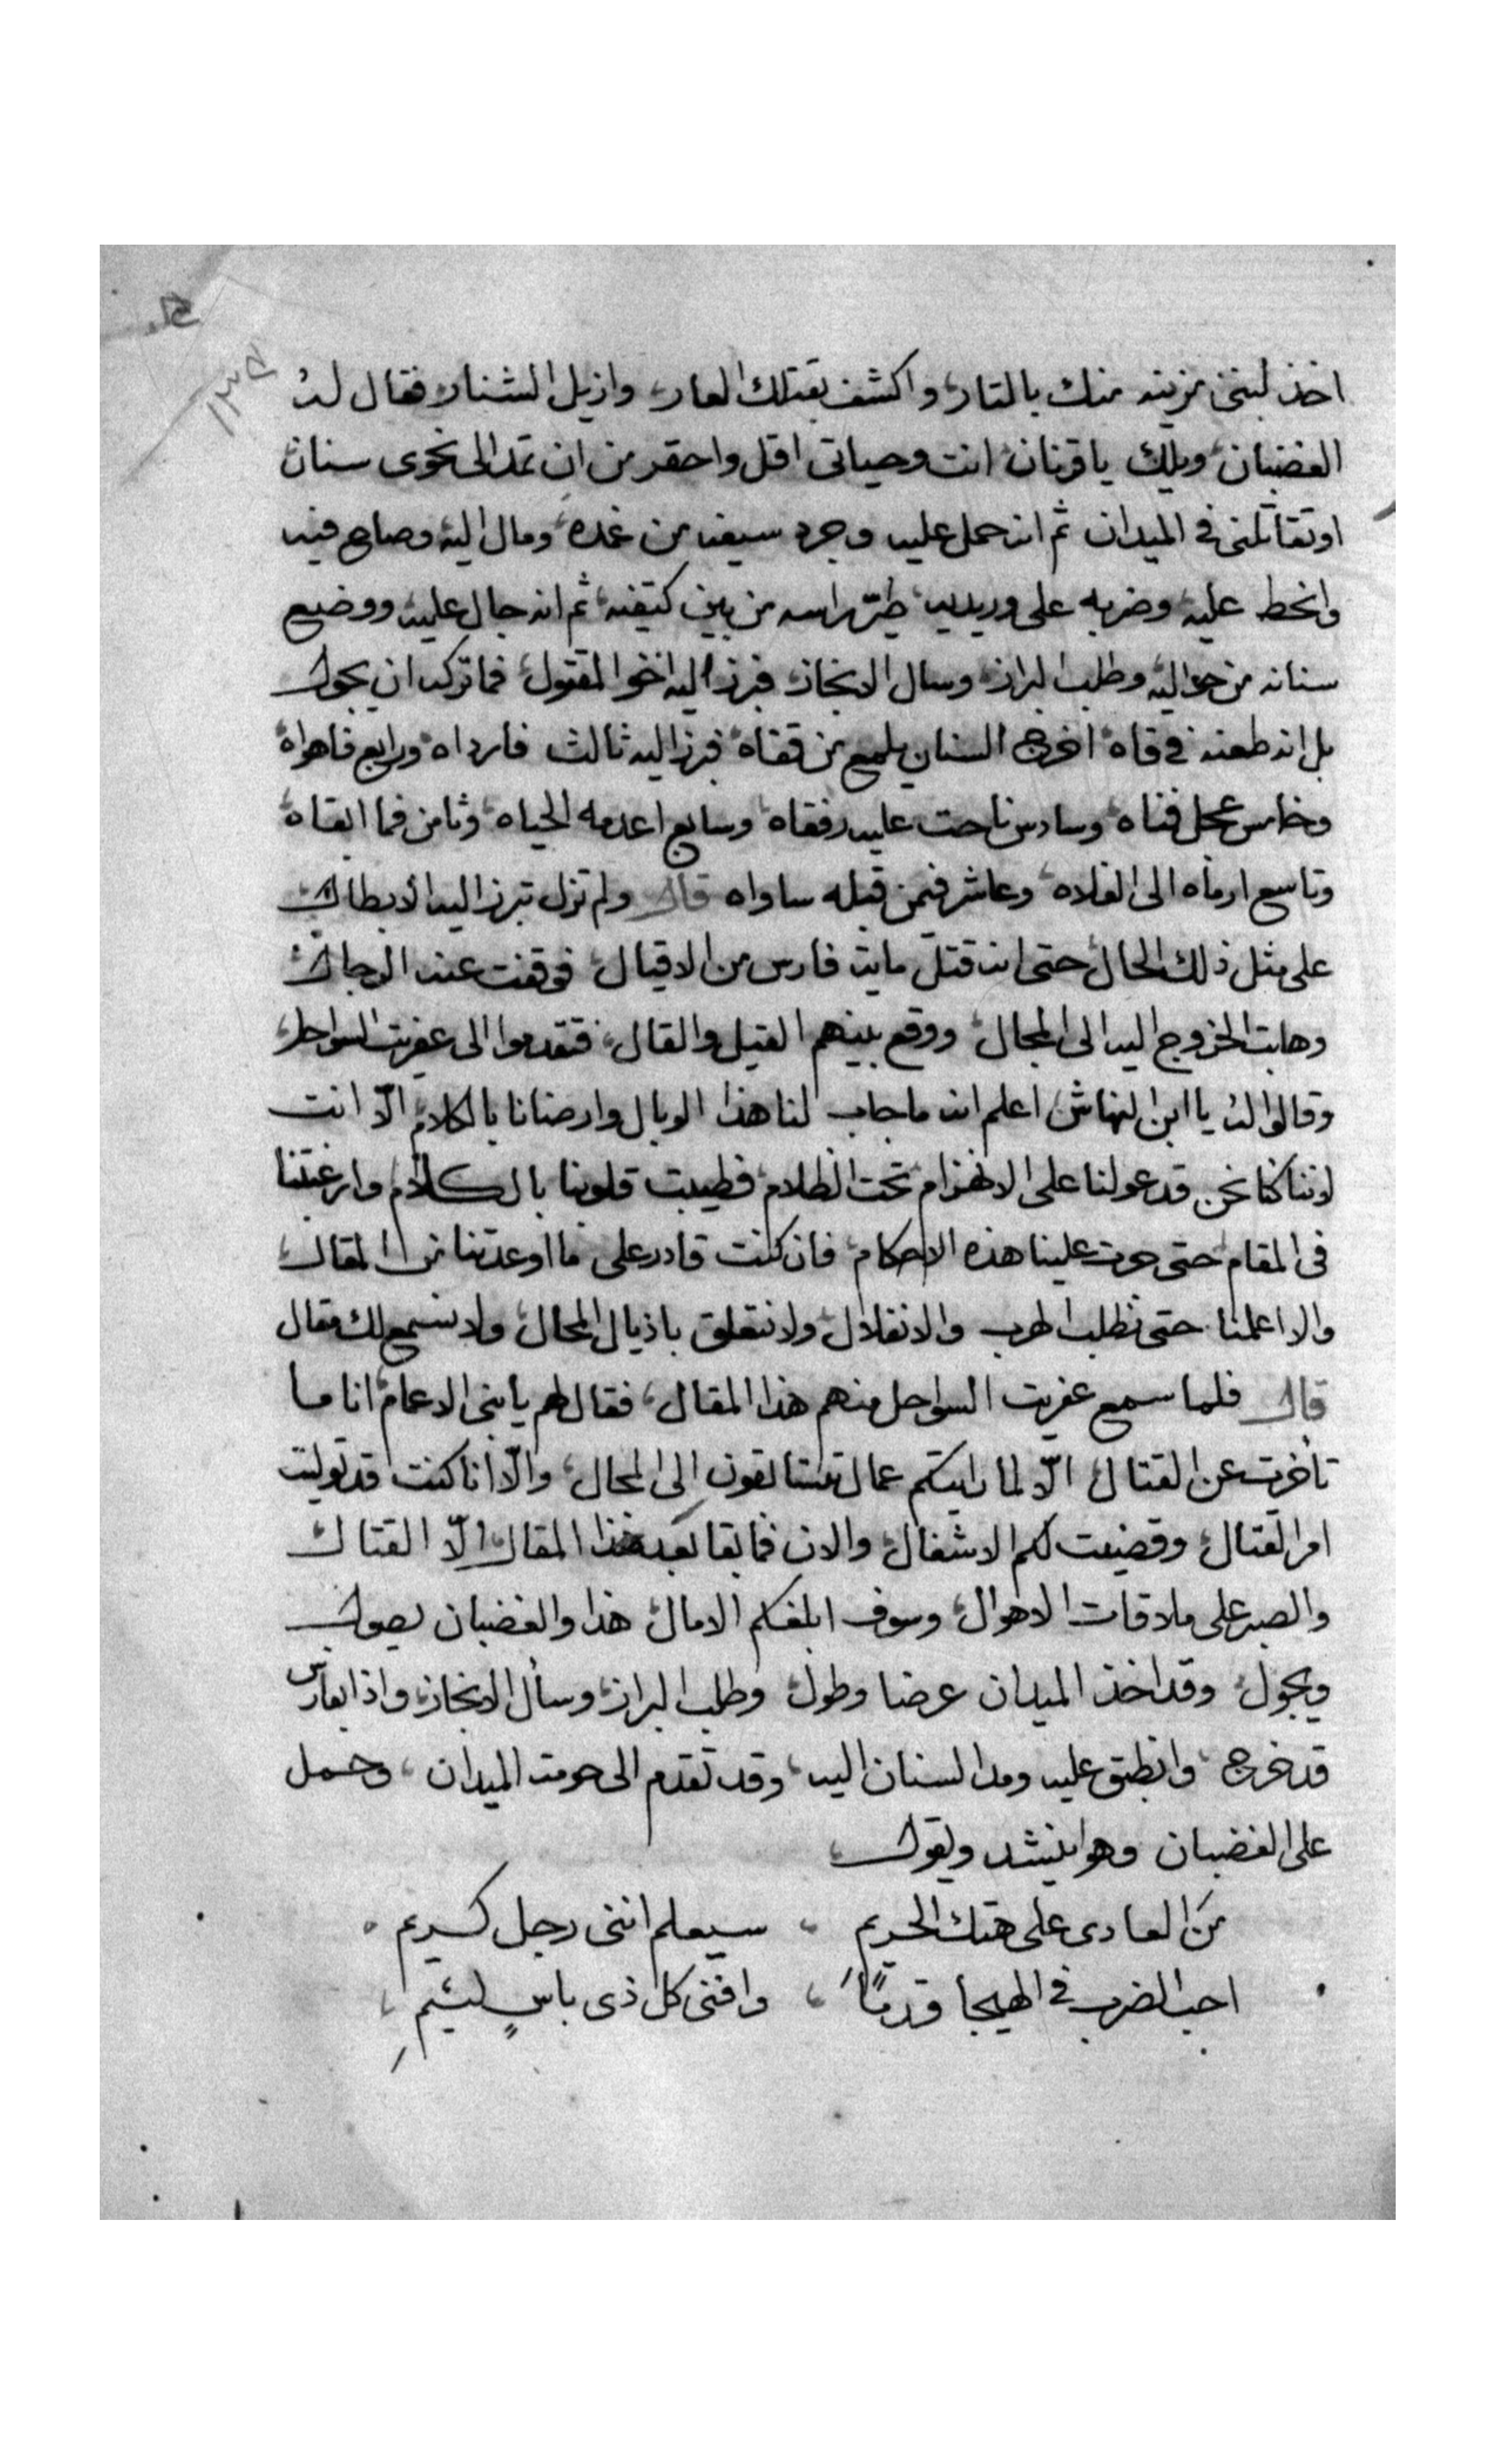 اخذ لبنى مزينه منك بالتار، واكشف بقتلك العار، وازيل الشنار فقال له
الغضبان ويلك ياقرنان انت وحياتى اقل واحقر من ان تمد الى نحوى سنان
او تقاتلنى فى الميدان ثم انه حمل عليه وجرد سيفه من غمده ومال اليه وصاح فيه
وانحط عليه وضربه على وريديه طيّر راسه من بين كتفيه ثم انه جال عليه ووضع
سنانه من حواليه وطلب البراز وسال الانجاز فبرز اليه اخو المقتول فما تركه ان يجول
بل انه طعنه فى فاه اخرج السنان يلمع من قفاه فبرز اليه ثالث فارداه ورابع فاهواه
وخامس عجل فناه وسادس ناحت عليه رفقاه وسابع اعدمه الحياه وثامن فما ابقاه
وتاسع ارماه الى الفلاه وعاشر فبمن قبله ساواه قال ولم تزل تبرز اليه الابطال
على مثل ذلك الحال حتى انه قتل مايت فارس من الاقيال فوقفت عنه الرجال
وهابت الخروج اليه الى المجال ووقع بينهم القيل والقال، فتقدموا الى عفريت السواحل
وقالوا له يا ابن النهاش اعلم انه ما جاب لنا هذا الوبال وارضانا بالكلام الّا انت
لاننا كنا نحن قد عولنا على الانهزام تحت الظلام فطيبت قلوبنا بالكلام وارغبتنا
فى المقام حتى جرت علينا هذه الاحكام فان كنت قادر على ما اوعدتنا من المقال
والا اعلمنا حتى نطلب الهرب والانفلال ولا نتعلق باذيال المحال ولا نسمع لك مقال
قال فلما سمع عفريت السواحل منهم هذا المقال، فقال لهم يا بنى الاعمام انا ما
تأخرت عن القتال الّا لما رايتكم عمال تتسابقون الى المجال، والّا انا كنت قد توليت
امر القتال وقضيت لكم الاشغال والان فما بقا بعد هذا المقال الّا القتال
والصبر على ملاقات الاهوال وسوف ابلغكم الامال هذا والغضبان يصول
ويجول وقد اخذ الميدان عرضا وطول وطلب البراز وسأل الانجاز واذا بفارس
قد خرج وانطبق عليه ومد السنان اليه وقد تقدم الى حومت الميدان، وحمل
على الغضبان وهو ينشد ويقول
من العادى على هتك الحريم ، سيعلم اننى رجل كريم
احب الضرب فى الهيجا قدمًا ، وافنى كل ذى باسٍ لئيم